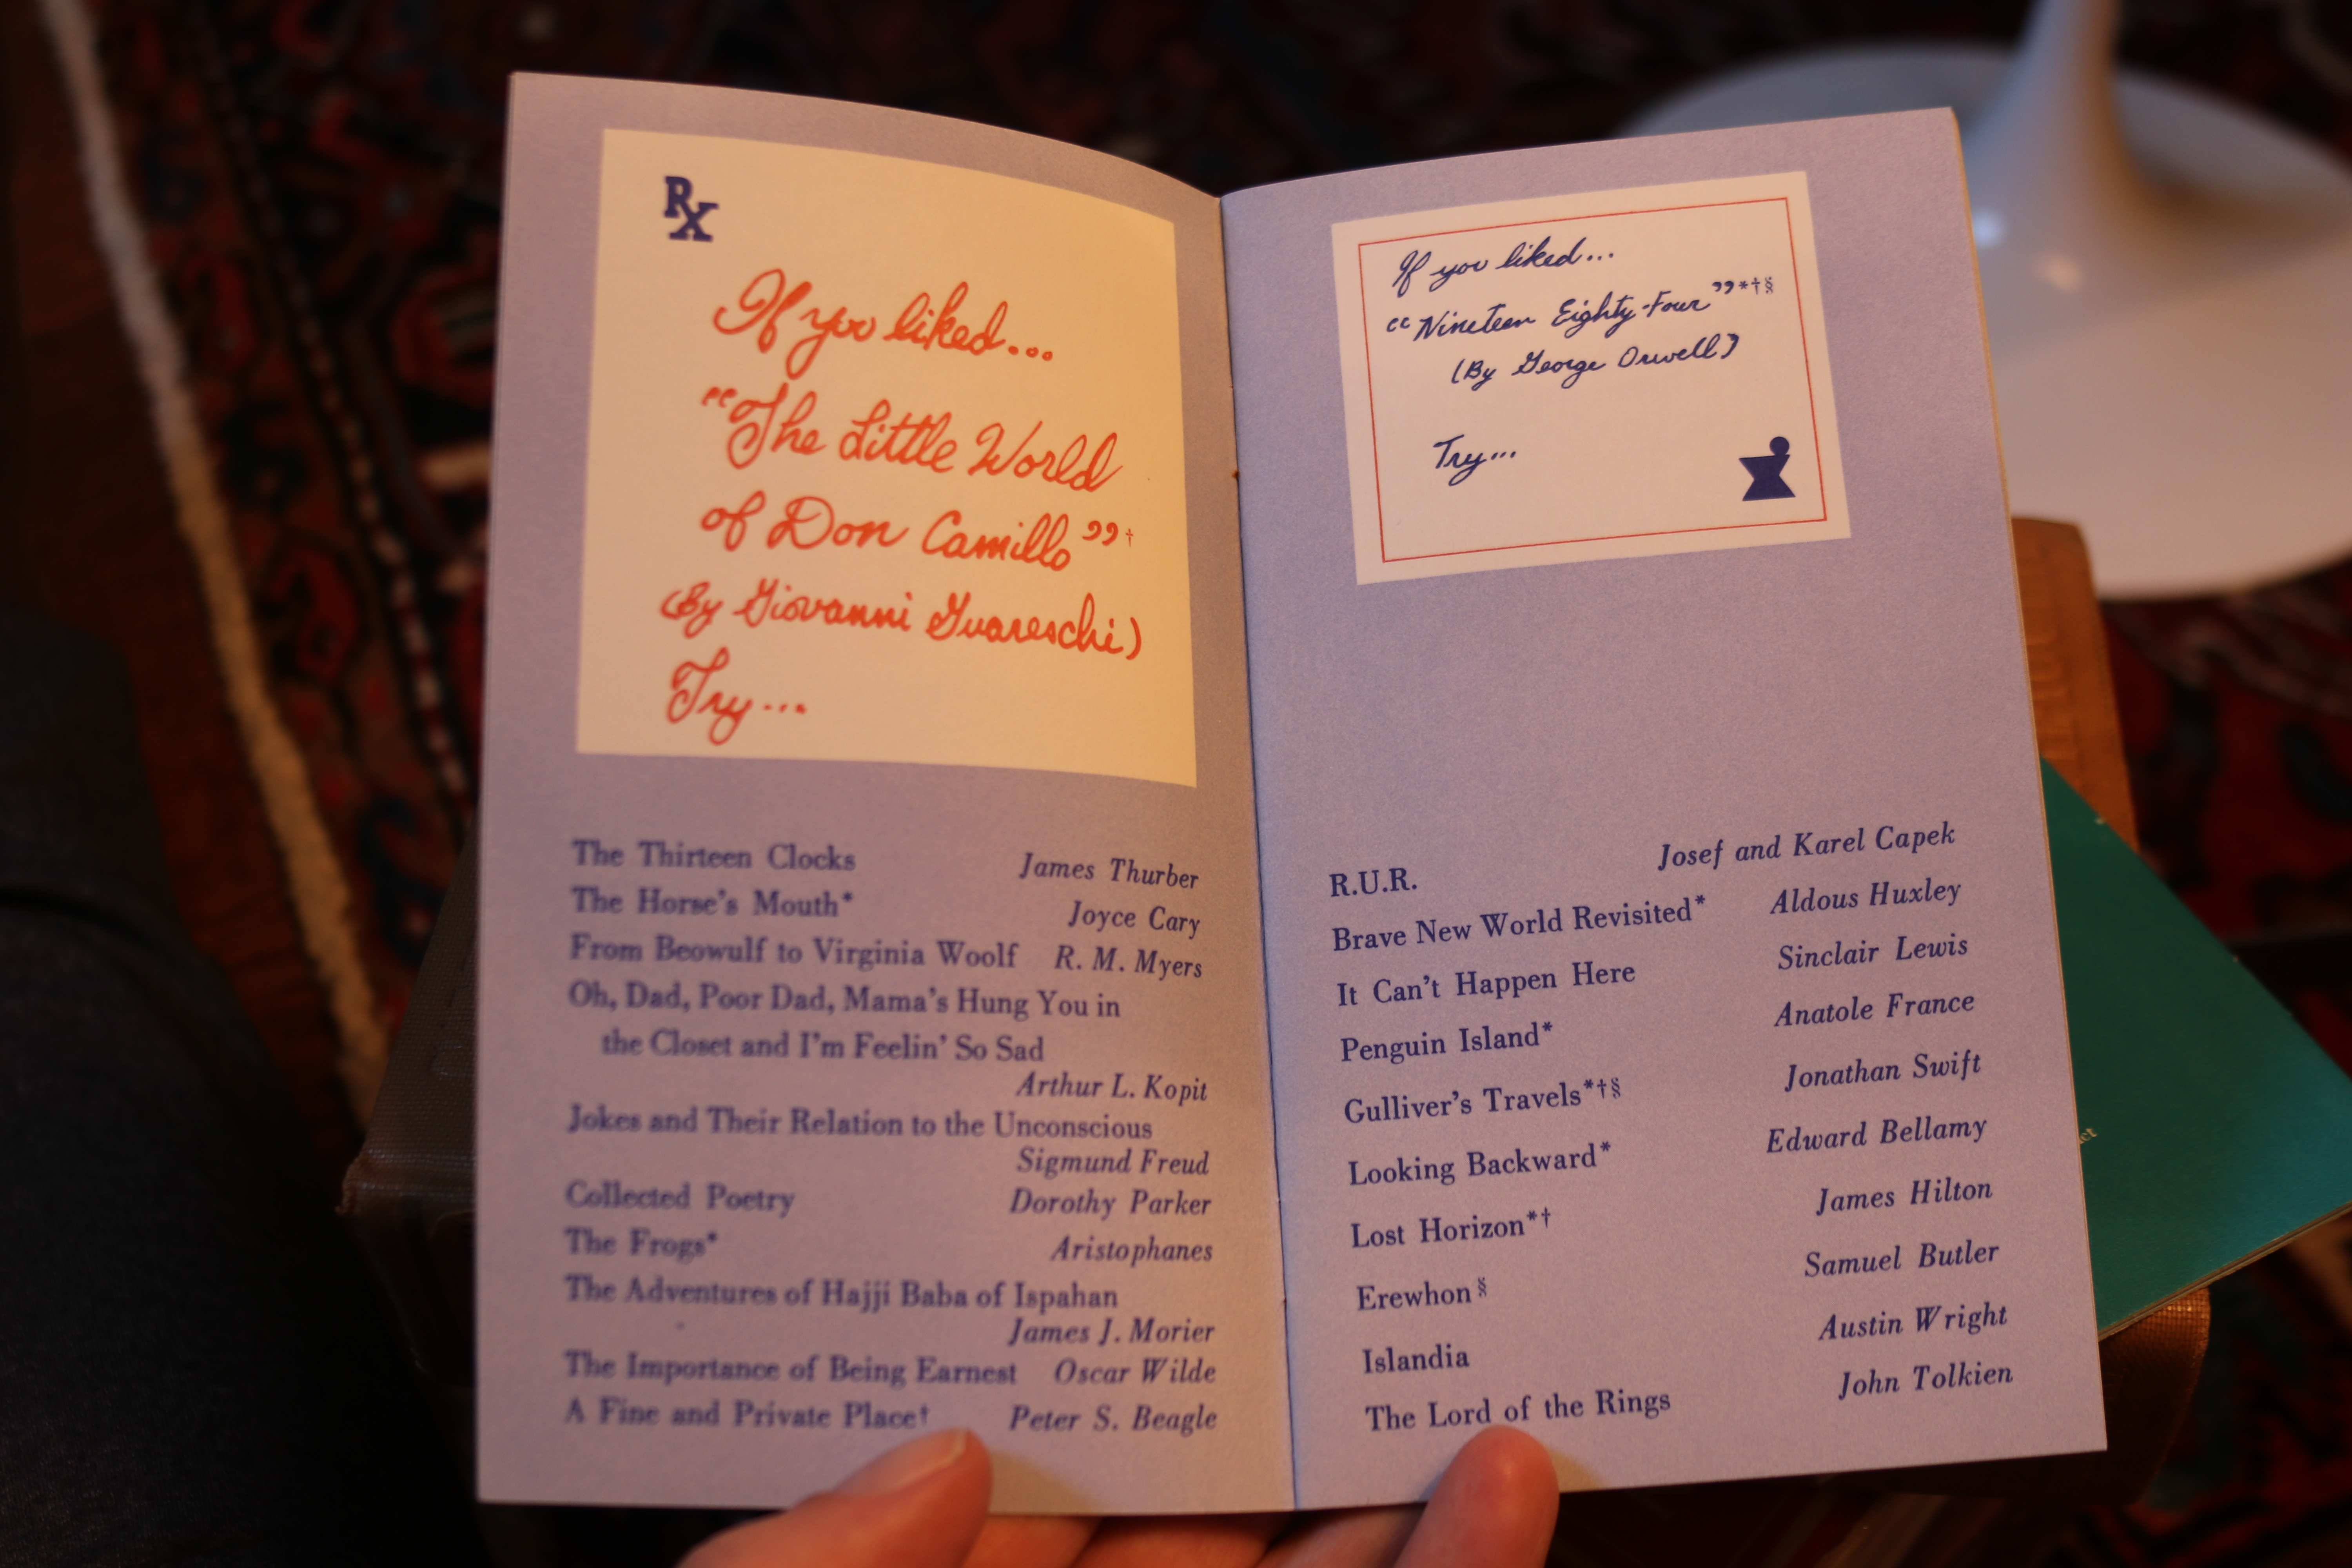 RX
If you liked...
"The Little World
of Don Camillo"†
(By Giovanni Guareschi)
Try...
The Thirteen Clocks James Thurber
The Horse's Mouth* Joyce Cary
From Beowulf to Virginia Woolf R. M. Myers
Oh, Dad, Poor Dad, Mama's Hung You in
the Closet and I'm Feelin' So Sad
Arthur L. Kopit
Jokes and Their Relation to the Unconscious
Sigmund Freud
Collected Poetry Dorothy Parker
The Frogs* Aristophanes
The Adventures of Hajji Baba of Ispahan
James J. Morier
The Importance of Being Earnest Oscar Wilde
A Fine and Private Place† Peter S. Beagle
If you liked...
"Nineteen Eighty-Four"*†§
(By George Orwell)
Try...
R.U.R. Josef and Karel Capek
Brave New World Revisited* Aldous Huxley
It Can't Happen Here Sinclair Lewis
Penguin Island* Anatole France
Gulliver's Travels*†§ Jonathan Swift
Looking Backward* Edward Bellamy
Lost Horizon*† James Hilton
Erewhon§ Samuel Butler
Islandia Austin Wright
The Lord of the Rings John Tolkien